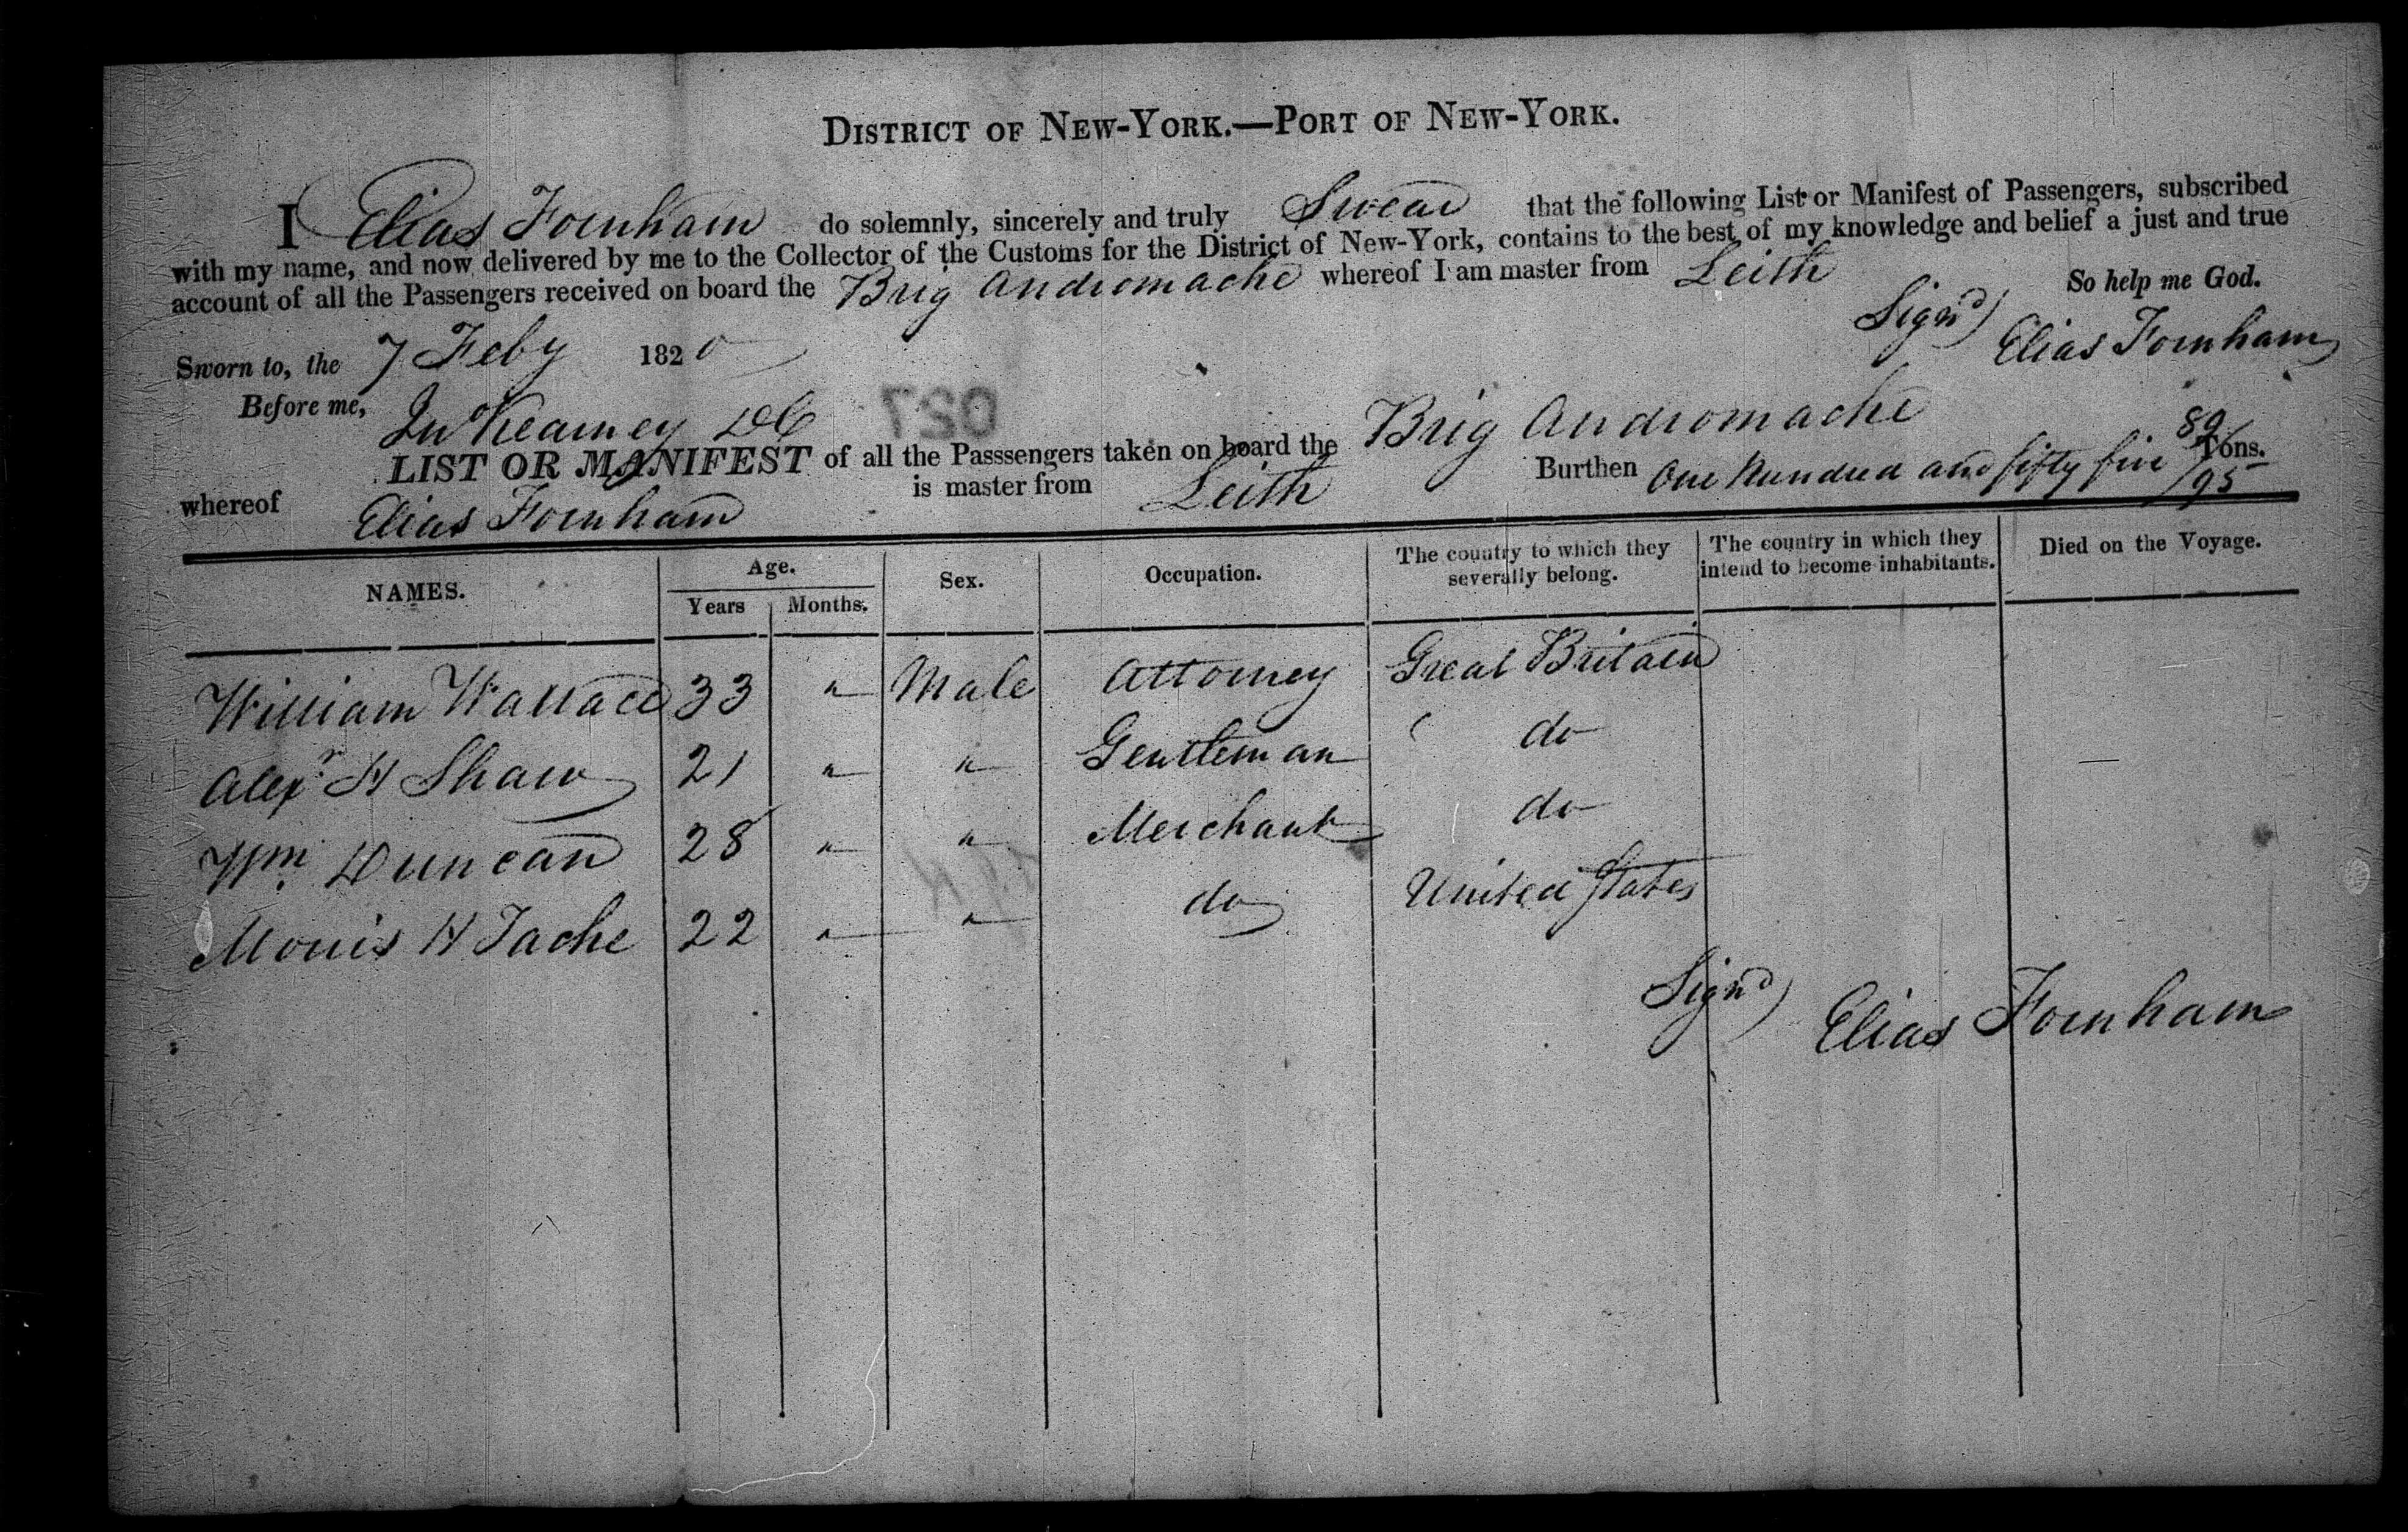 DISTRICT OF NEW-YORK.—PORT OF NEW-YORK.
I Elias Fornham do solemnly, sincerely and truly Swear that the following List or Manifest of Passengers, subscribed
with my name, and now delivered by me to the Collector of the Customs for the District of New-York, contains to the best of my knowledge and belief a just and true
account of all the Passengers received on board the Brig Andromache whereof I am master from Leith
So help me God.
Sign'd) Elias Fornham
Sworn to, the 7 Feby 1820
Before me,
Jn Kearney DC
027
LIST OR MANIFEST of all the Passsengers taken on board the Brig Andromache
whereof Elias Fornham is master from Leith Burthen One Hundred and fifty five 89/95 Tons.
NAMES. Age. Years Months. Sex. Occupation. The country to which they severally belong. The country in which they intend to become inhabitants. Died on the Voyage.
William Wallace 33 " Male Attorney Great Britain
Alexr H Shaw 21 " " Gentleman do
Wm Duncan 28 " " Merchant do
Morris H Tache 22 " " do United States
Sign'd) Elias Fornham